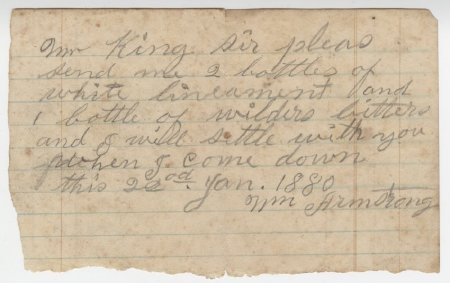 Mr King sir pleas
send me 2 bottles of
white lineament and
1 bottle of wilders bitters
and I will settle with you
when I come down
this 22nd Jan. 1880
Wm Armstrong